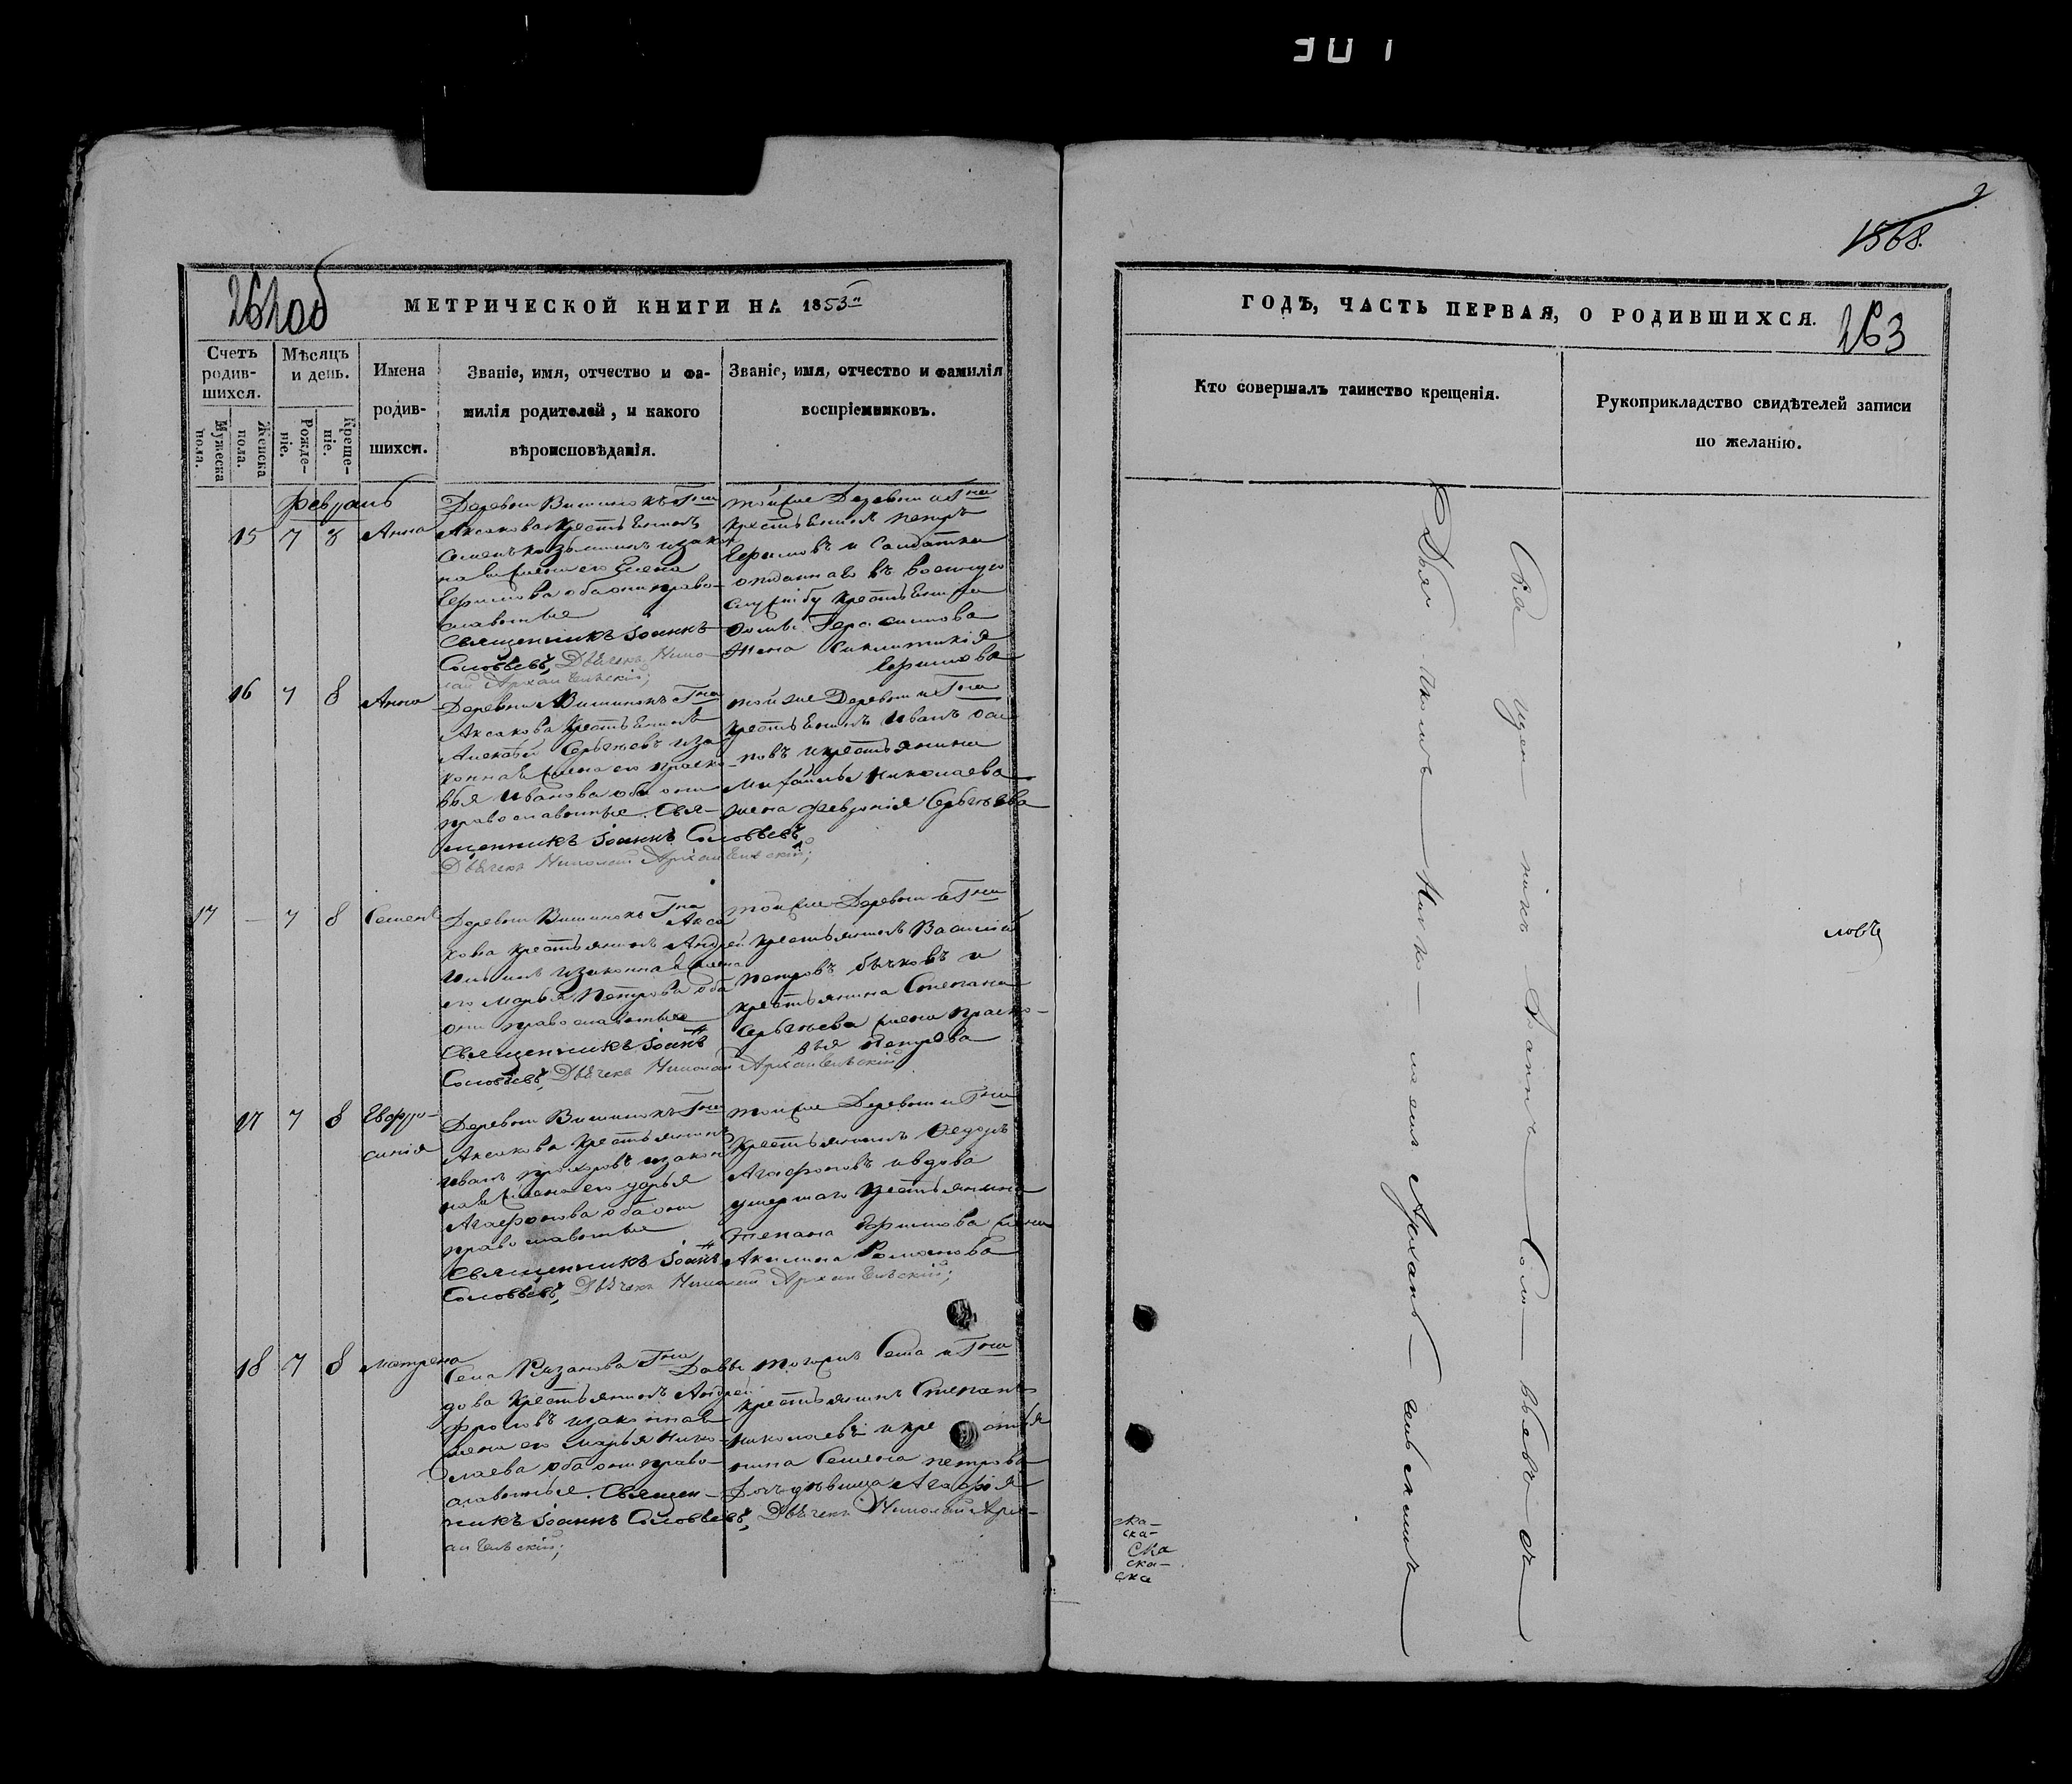 301
1568.
262об
МЕТРИЧЕСКОЙ КНИГИ НА 1853й
Счетъ родив-шихся.
Мужеска пола.
Женска пола.
Мѣсяцъ и день.
Рожде-ніе.
Креще-ніе.
Имена родив-шихся.
Званіе, имя, отчество и фа-
милія родителей, и какого
вѣроисповѣданія.
Званіе, имя, отчество и фамилія
воспріемниковъ.
февраль
15 7 8 Анна
Деревни Вишнокъ Гна
Аксакова крестьянинъ
Семенъ Козьминъ и закон
ная жена его Елена
Ефимова оба они право-
славные
Священникъ Іоаннъ
Соловьевъ, Дьячекъ Нико-
лай Архангельскій;
той же Деревни и Гна
крестьянинъ Петръ
Ефимовъ и Солдатка
отданнаго въ военную
службу крестьянина
Герасимова
Жена
Ефимова
16 7 8 Анна
Деревни Вишнокъ Гна
Аксакова крестьянинъ
Алексѣй Сергѣевъ и за
конная жена его Праско-
вья Иванова оба они
православные. Свя-
щенникъ Іоаннъ Соловьевъ,
Дьячекъ Николай Архангельскій;
той же Деревни и Гна
крестьянинъ Иванъ Оси
повъ и крестьянина
Михайлы Николаева
жена Феврония Сергѣева
17 — 7 8 Семенъ
Деревни Вишнокъ Гна Акса
кова крестьянинъ Андрей
Ильинъ и законная жена
его Марья Петрова оба
они православные
Священникъ Іоаннъ
Соловьевъ, Дьячекъ Николай Архангельскій
той же Деревни и Гна
крестьянинъ Василій
Петровъ Бычковъ и
крестьянина Степана
Сергѣева жена Праско-
вья Петрова
17 7 8 Евфро-
синія
Деревни Вишнокъ Гна
Аксакова крестьянинъ
Иванъ Прохоровъ и закон
ная жена его Дарья
Агафонова оба они
православные
Священникъ Іоаннъ
Соловьевъ, Дьячекъ Николай Архангельскій;
той же Деревни и Гна
крестьянинъ Федоръ
Агафоновъ и вдова
умершаго крестьянина
Степана Ефимова жена
Акилина Романова
18 7 8 Матрена
Села Рязанова Гна Давы
дова крестьянинъ Андрей
Фроловъ и законная
жена его Марья Нико-
лаева оба они право-
славные. Священ-
никъ Іоаннъ Соловьевъ, Дьячекъ Николай Арх-
ангельскій;
того же Села и Гна
крестьянинъ Степанъ
Николаевъ и кре стья
нина Семена Петрова
дочь дѣвица Агафья
ГОДЪ, ЧАСТЬ ПЕРВАЯ, О РОДИВШИХСЯ.
263
Кто совершалъ таинство крещенія.
Рукоприкладство свидѣтелей записи
по желанію.
Свя щен никъ Іоаннъ Соло— вьевъ съ
Дья чкомъ Нико— лаемъ Арханг— ельскимъ
ловъ
ска—
ска—
ска
ска—
ска